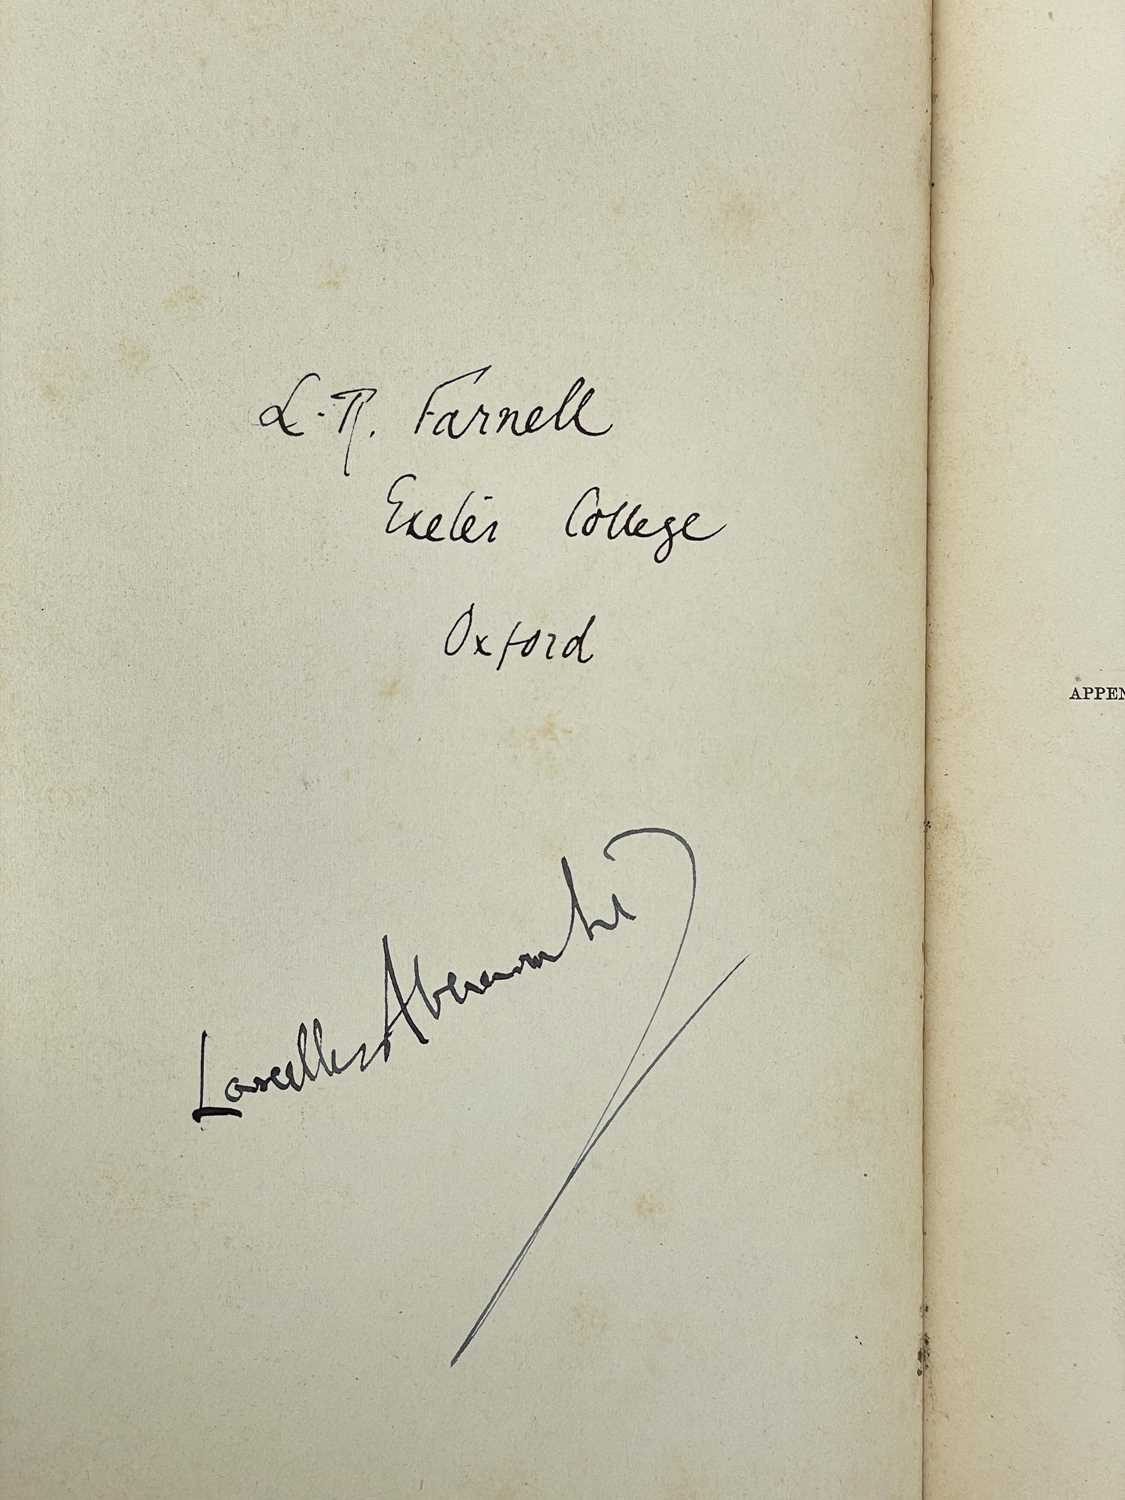 L. R. Farnell
Exeter College
Oxford
Lascelles Abercrombie
APPEN